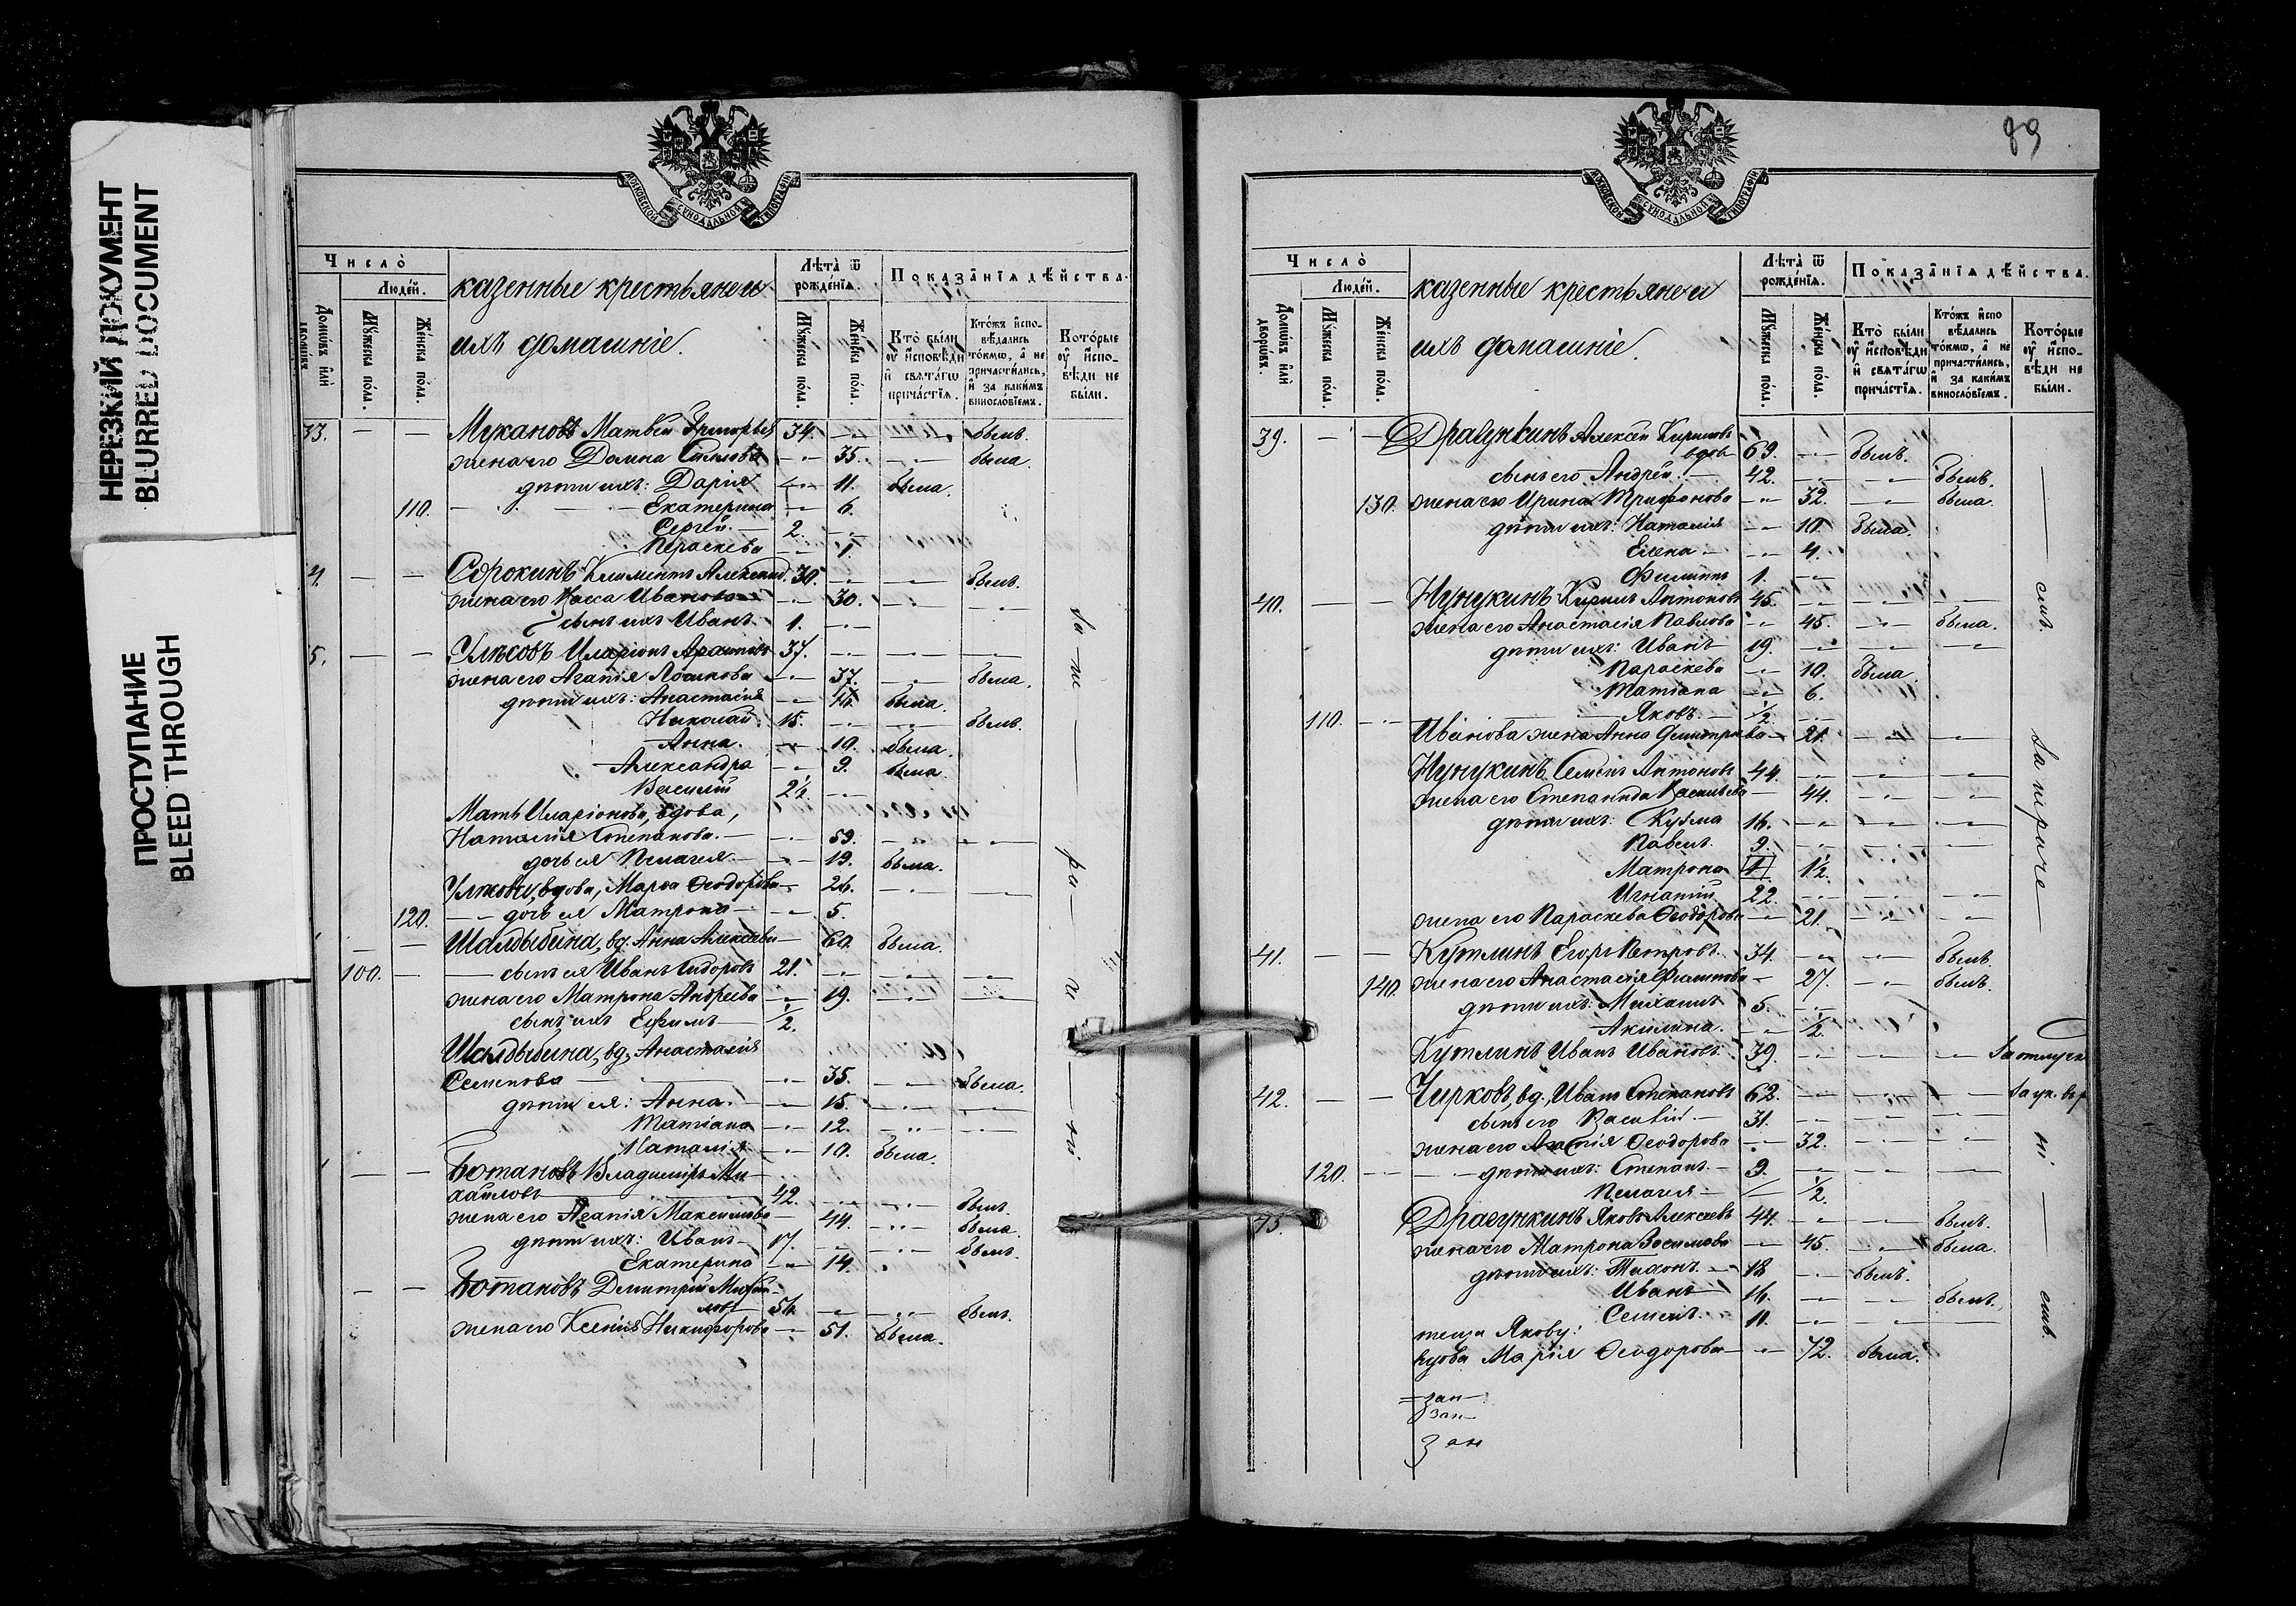 НЕРЕЗКИЙ ДОКУМЕНТ
BLURRED DOCUMENT
ПРОСТУПАНИЕ
BLEED THROUGH
МОСКОВСКОЙ СѴНОДАЛЬНОЙ ТИПОГРАФІИ
Число̀
Людéй.
Домѡ́въ и҆лѝ дворѡ́въ
Мꙋ́жеска по́ла.
Же́нска по́ла.
казенные крестьяне и
ихъ домашніе.
Лѣта̀ ѿ рождéнїѧ.
Мꙋ́жеска по́ла.
Же́нска по́ла.
Показа̑нїѧ дѣ́йства.
Кто̀ бы́ли оу҆ и҆́сповѣди и҆ свѧта́гѡ причáстїѧ.
Кто́жъ и҆спо-вѣ́дались то́кмѡ, а҆ не причасти́лись, и҆ за каки́мъ винослóвїемъ.
Кото́рые оу҆ и҆спо-вѣди не бы́ли.
33. — — Мукановъ Матвѣй Григорьев 34. былъ.
жена его Домна 35. была.
дѣти ихъ: Дарія 11. была.
110. Екатерина 6.
Сергѣй. 2.
Параскева 1.
4. — — Сорокинъ Климентъ Александ. 30. былъ.
жена его Васса Иванова 30.
сынъ ихъ Иванъ. 1.
5. — — Улѣсовъ Иларіонъ 37.
жена его Агапія 37. была.
дѣти ихъ: Анастасія была.
Николай. 15. былъ.
Анна. 10. была.
Александра 9. была.
Василій 2½.
Мать Иларіонова, вдова,
Наталія Степанова. 59.
дочь ея Пелагея. 19. была.
вдова, Марѳа Ѳеодорова 26.
120. дочь ея Матрона 5.
— — Шалдыбина, вд. Анна Алексѣева 60. была.
100. — сынъ ея Иванъ Сидоровъ 21.
жена его Матрона Андреева 19.
сынъ ихъ Ефимъ ½.
Шалдыбина, вд. Анастасія
Семенова 35. была.
дѣти ея: Анна. 15.
Татіана 12.
Наталія 10. была.
— — Ботановъ Владиміръ Ми-
хайловъ 42. былъ.
жена его Агапія Максимова 44. была.
дѣти ихъ: Иванъ 17. былъ.
Екатерина 14.
— — Ботановъ Димитрій Михай-
ловъ 54. былъ.
жена его Ксенія Никифорова 51. была.
89
Число̀
Людéй.
Домѡ́въ и҆лѝ дворѡ́въ.
Мꙋ́жеска по́ла.
Же́нска по́ла.
казенные крестьяне и
ихъ домашніе.
Лѣта̀ ѿ рождéнїѧ.
Мꙋ́жеска по́ла.
Же́нска по́ла.
Показа̑нїѧ дѣ́йства.
Кто̀ бы́ли оу҆ и҆́сповѣди и҆ свѧта́гѡ причáстїѧ.
Кто́жъ и҆спо вѣ́дались то́кмѡ, а҆ не причасти́лись, и҆ за каки́мъ винослóвїемъ.
Кото́рые оу҆ и҆спо-вѣди не бы́ли.
39. — — Драгункинъ Алексѣй Кириловъ
вдов 69. былъ.
сынъ его Андрей. 42. былъ.
130. жена его Ирина Трифонова 32. была.
дѣти ихъ: Наталія 10. была.
Елена 4.
Филиппъ 1.
40. — — Нунукинъ Кирилъ Антоновъ 45.
жена его Анастасія Павлова 45. была.
дѣти ихъ: Иванъ 19.
Параскева 10. была.
Татіана 6.
110. Яковъ. ½.
Иванова жена Анна Димитріева 21.
Нунукинъ Семенъ Антоновъ 44.
жена его Степанида Васильева 44.
дѣти ихъ: Кузьма 16.
Павелъ. 9.
Матрона 1½.
Игнатій 22.
жена его Параскева Ѳеодорова 21.
41. — — Кутлинъ Егоръ Петровъ. 34. былъ.
140. жена его Анастасія Филипова 27. былъ.
дѣти ихъ: Михаилъ 5.
Акилина. ½.
Кутлинъ Иванъ Ивановъ. 39. За отлучк
42. — — Чирковъ, вд. Иванъ Степановъ 62.
сынъ его Василій. 31.
жена его Агапія Ѳеодорова 32.
120. дѣти ихъ: Степанъ. 9.
Пелагея ½.
43. Драгункинъ Яковъ Алексѣевъ 44. былъ.
жена его Матрона Зосимова 45. была.
дѣти ихъ: Тихонъ. 18 былъ.
Иванъ 16. былъ.
Семенъ. 11.
теща Якову:
вдова Марія Ѳеодорова 72. была.
зап
зап
зап